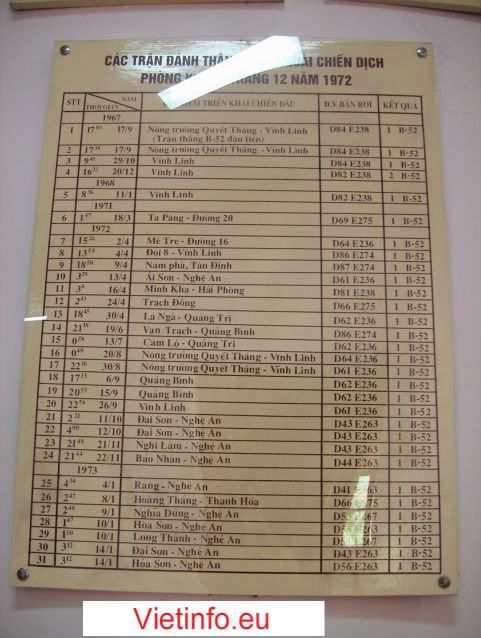 CÁC TRẬN ĐÁNH THẮNG NGOÀI CHIẾN DỊCH
PHÒNG THÁNG 12 NĂM 1972
STT NĂM THỜI GIAN ĐIỂM TRIỂN KHAI CHIẾN ĐẤU Đ.V BẮN RƠI KẾT QUẢ
1967
1 17⁰³ 17/9 Nông trường Quyết Thắng - Vĩnh Linh D84 E238 1 B-52
(Trận thắng B-52 đầu tiên)
2 17³⁴ 17/9 Nông trường Quyết Thắng - Vĩnh Linh D84 E238 1 B-52
3 9⁴⁵ 29/10 Vĩnh Linh D84 E238 1 B-52
4 16²² 20/12 Vĩnh Linh D82 E238 2 B-52
1968
5 8³⁶ 11/1 Vĩnh Linh D82 E238 1 B-52
1971
6 1⁴⁷ 18/3 Ta Pàng - Đường 20 D69 E275 1 B-52
1972
7 15²⁶ 2/4 Mé Tre - Đường 16 D64 E236 1 B-52
8 13⁵⁸ 4/4 Đội 8 - Vĩnh Linh D86 E274 1 B-52
9 18⁵⁰ 9/4 Nam phà, Tân Định D87 E274 1 B-52
10 3²⁹ 13/4 Ái Sơn - Nghệ An D61 E236 1 B-52
11 3⁶ 16/4 Minh Kha - Hải Phòng D81 E238 1 B-52
12 2⁴³ 24/4 Trạch Đông D66 E275 1 B-52
13 18⁴⁵ 30/4 La Ngà - Quảng Trị D62 E236 1 B-52
14 21¹⁸ 19/6 Vạn Trạch - Quảng Bình D86 E274 1 B-52
15 0⁵⁸ 13/7 Cam Lộ - Quảng Trị D62 E236 1 B-52
16 0⁴⁰ 20/8 Nông trường Quyết Thắng - Vĩnh Linh D64 E236 1 B-52
17 22¹⁶ 30/8 Nông trường Quyết Thắng - Vĩnh Linh D61 E236 1 B-52
18 17¹⁵ 6/9 Quảng Bình D62 E236 1 B-52
19 20⁵⁵ 15/9 Quảng Bình D62 E236 1 B-52
20 22⁵⁶ 26/9 Vĩnh Linh D61 E236 1 B-52
21 2²¹ 11/10 Đại Sơn - Nghệ An D43 E263 1 B-52
22 4⁰⁰ 12/10 Đại Sơn - Nghệ An D43 E263 1 B-52
23 21⁴⁸ 21/11 Nghi Lâm - Nghệ An D43 E263 1 B-52
24 21⁴⁴ 22/11 Bảo Nhân - Nghệ An D44 E263 1 B-52
1973
25 4³⁴ 4/1 Rạng - Nghệ An D41 E263 1 B-52
26 2⁴⁷ 8/1 Hoằng Thắng - Thanh Hóa D66 E275 1 B-52
27 2⁴⁸ 9/1 Nghĩa Dũng - Nghệ An 1 B-52
28 1⁴⁷ 10/1 Hòa Sơn - Nghệ An D56 E263 1 B-52
29 1⁵⁰ 10/1 Long Thành - Nghệ An 1 B-52
30 3¹² 14/1 Đại Sơn - Nghệ An D43 E263 1 B-52
31 3¹² 14/1 Hòa Sơn - Nghệ An D56 E263 1 B-52
Vietinfo.eu